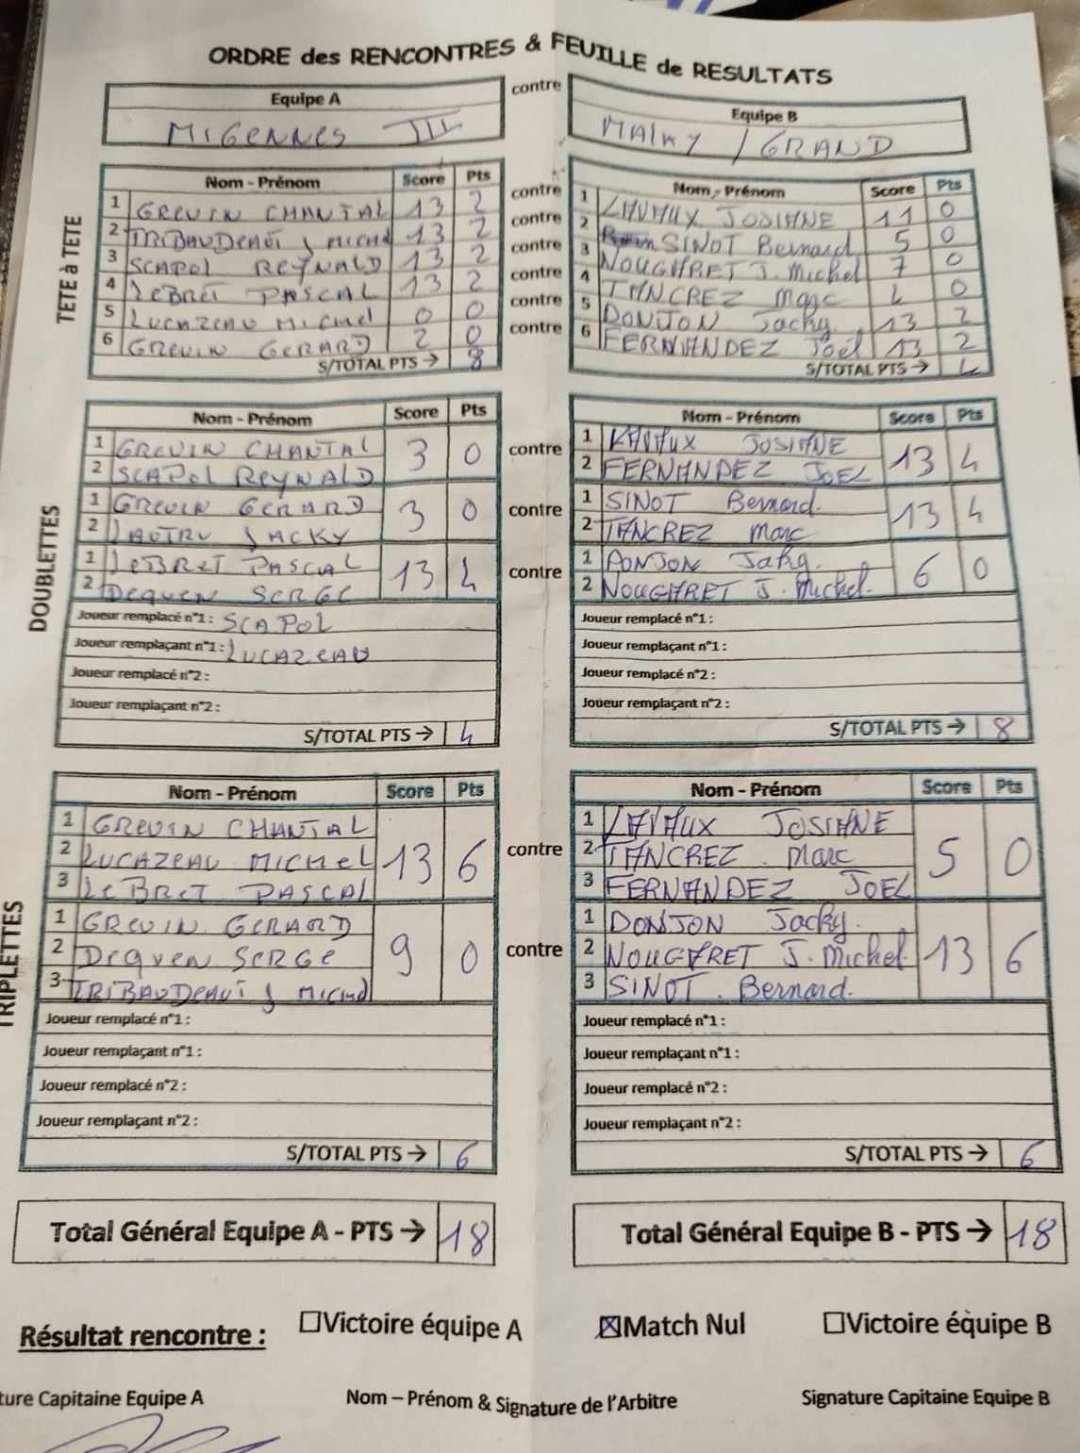 ORDRE des RENCONTRES & FEUILLE de RESULTATS
Equipe A contre Equipe B
MIGENNES III MALAY / GRAND
TETE à TETE
Nom - Prénom Score Pts Nom - Prénom Score Pts
1 GREVIN CHANTAL 13 2 contre 1 LAVAUX JOSIANE 11 0
2 TRIBAUDEAUT J Michel 13 2 contre 2 SINOT Bernard 5 0
3 SCAPOL REYNALD 13 2 contre 3 NOUGHRET J. Michel 7 0
4 LEBRET PASCAL 13 2 contre 4 TANCREZ Marc 4 0
5 LUCAZEAU Michel 0 0 contre 5 DONJON Jacky 13 2
6 GREVIN GERARD 2 0 contre 6 FERNANDEZ Joël 13 2
S/TOTAL PTS → 8 S/TOTAL PTS → 4
DOUBLETTES
Nom - Prénom Score Pts Nom - Prénom Score Pts
1 GREVIN CHANTAL 1 LAVAUX JOSIANE
3 0 contre 13 4
2 SCAPOL REYNALD 2 FERNANDEZ JOEL
1 GREVIN GERARD 1 SINOT Bernard.
3 0 contre 13 4
2 LAUTRU JACKY 2 TANCREZ Marc
1 LEBRET PASCAL 1 DONJON Jaky.
13 4 contre 6 0
2 Dequen SERGE 2 NOUGHRET J. Michel.
Joueur remplacé n°1 : SCAPOL Joueur remplacé n°1 :
Joueur remplaçant n°1 : LUCAZEAU Joueur remplaçant n°1 :
Joueur remplacé n°2 : Joueur remplacé n°2 :
Joueur remplaçant n°2 : Joueur remplaçant n°2 :
S/TOTAL PTS → 4 S/TOTAL PTS → 8
TRIPLETTES
Nom - Prénom Score Pts Nom - Prénom Score Pts
1 GREVIN CHANTAL 1 LAVAUX JOSIANE
2 LUCAZEAU MICHEL 13 6 contre 2 TANCREZ . Marc 5 0
3 LEBRET PASCAL 3 FERNANDEZ JOEL
1 GREVIN GERARD 1 DONJON Jacky.
2 Dequen SERGE 9 0 contre 2 NOUGHRET J. Michel. 13 6
3 TRIBAUDEAUT J Michel 3 SINOT . Bernard.
Joueur remplacé n°1 : Joueur remplacé n°1 :
Joueur remplaçant n°1 : Joueur remplaçant n°1 :
Joueur remplacé n°2 : Joueur remplacé n°2 :
Joueur remplaçant n°2 : Joueur remplaçant n°2 :
S/TOTAL PTS → 6 S/TOTAL PTS → 6
Total Général Equipe A - PTS → 18 Total Général Equipe B - PTS → 18
Résultat rencontre : ☐Victoire équipe A ☒Match Nul ☐Victoire équipe B
ture Capitaine Equipe A Nom – Prénom & Signature de l'Arbitre Signature Capitaine Equipe B